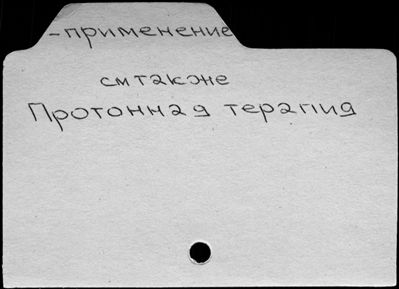 -применение
см также
Протонная терапия